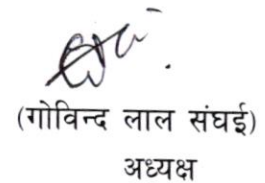 (गोविन्द लाल संघई)
अध्यक्ष